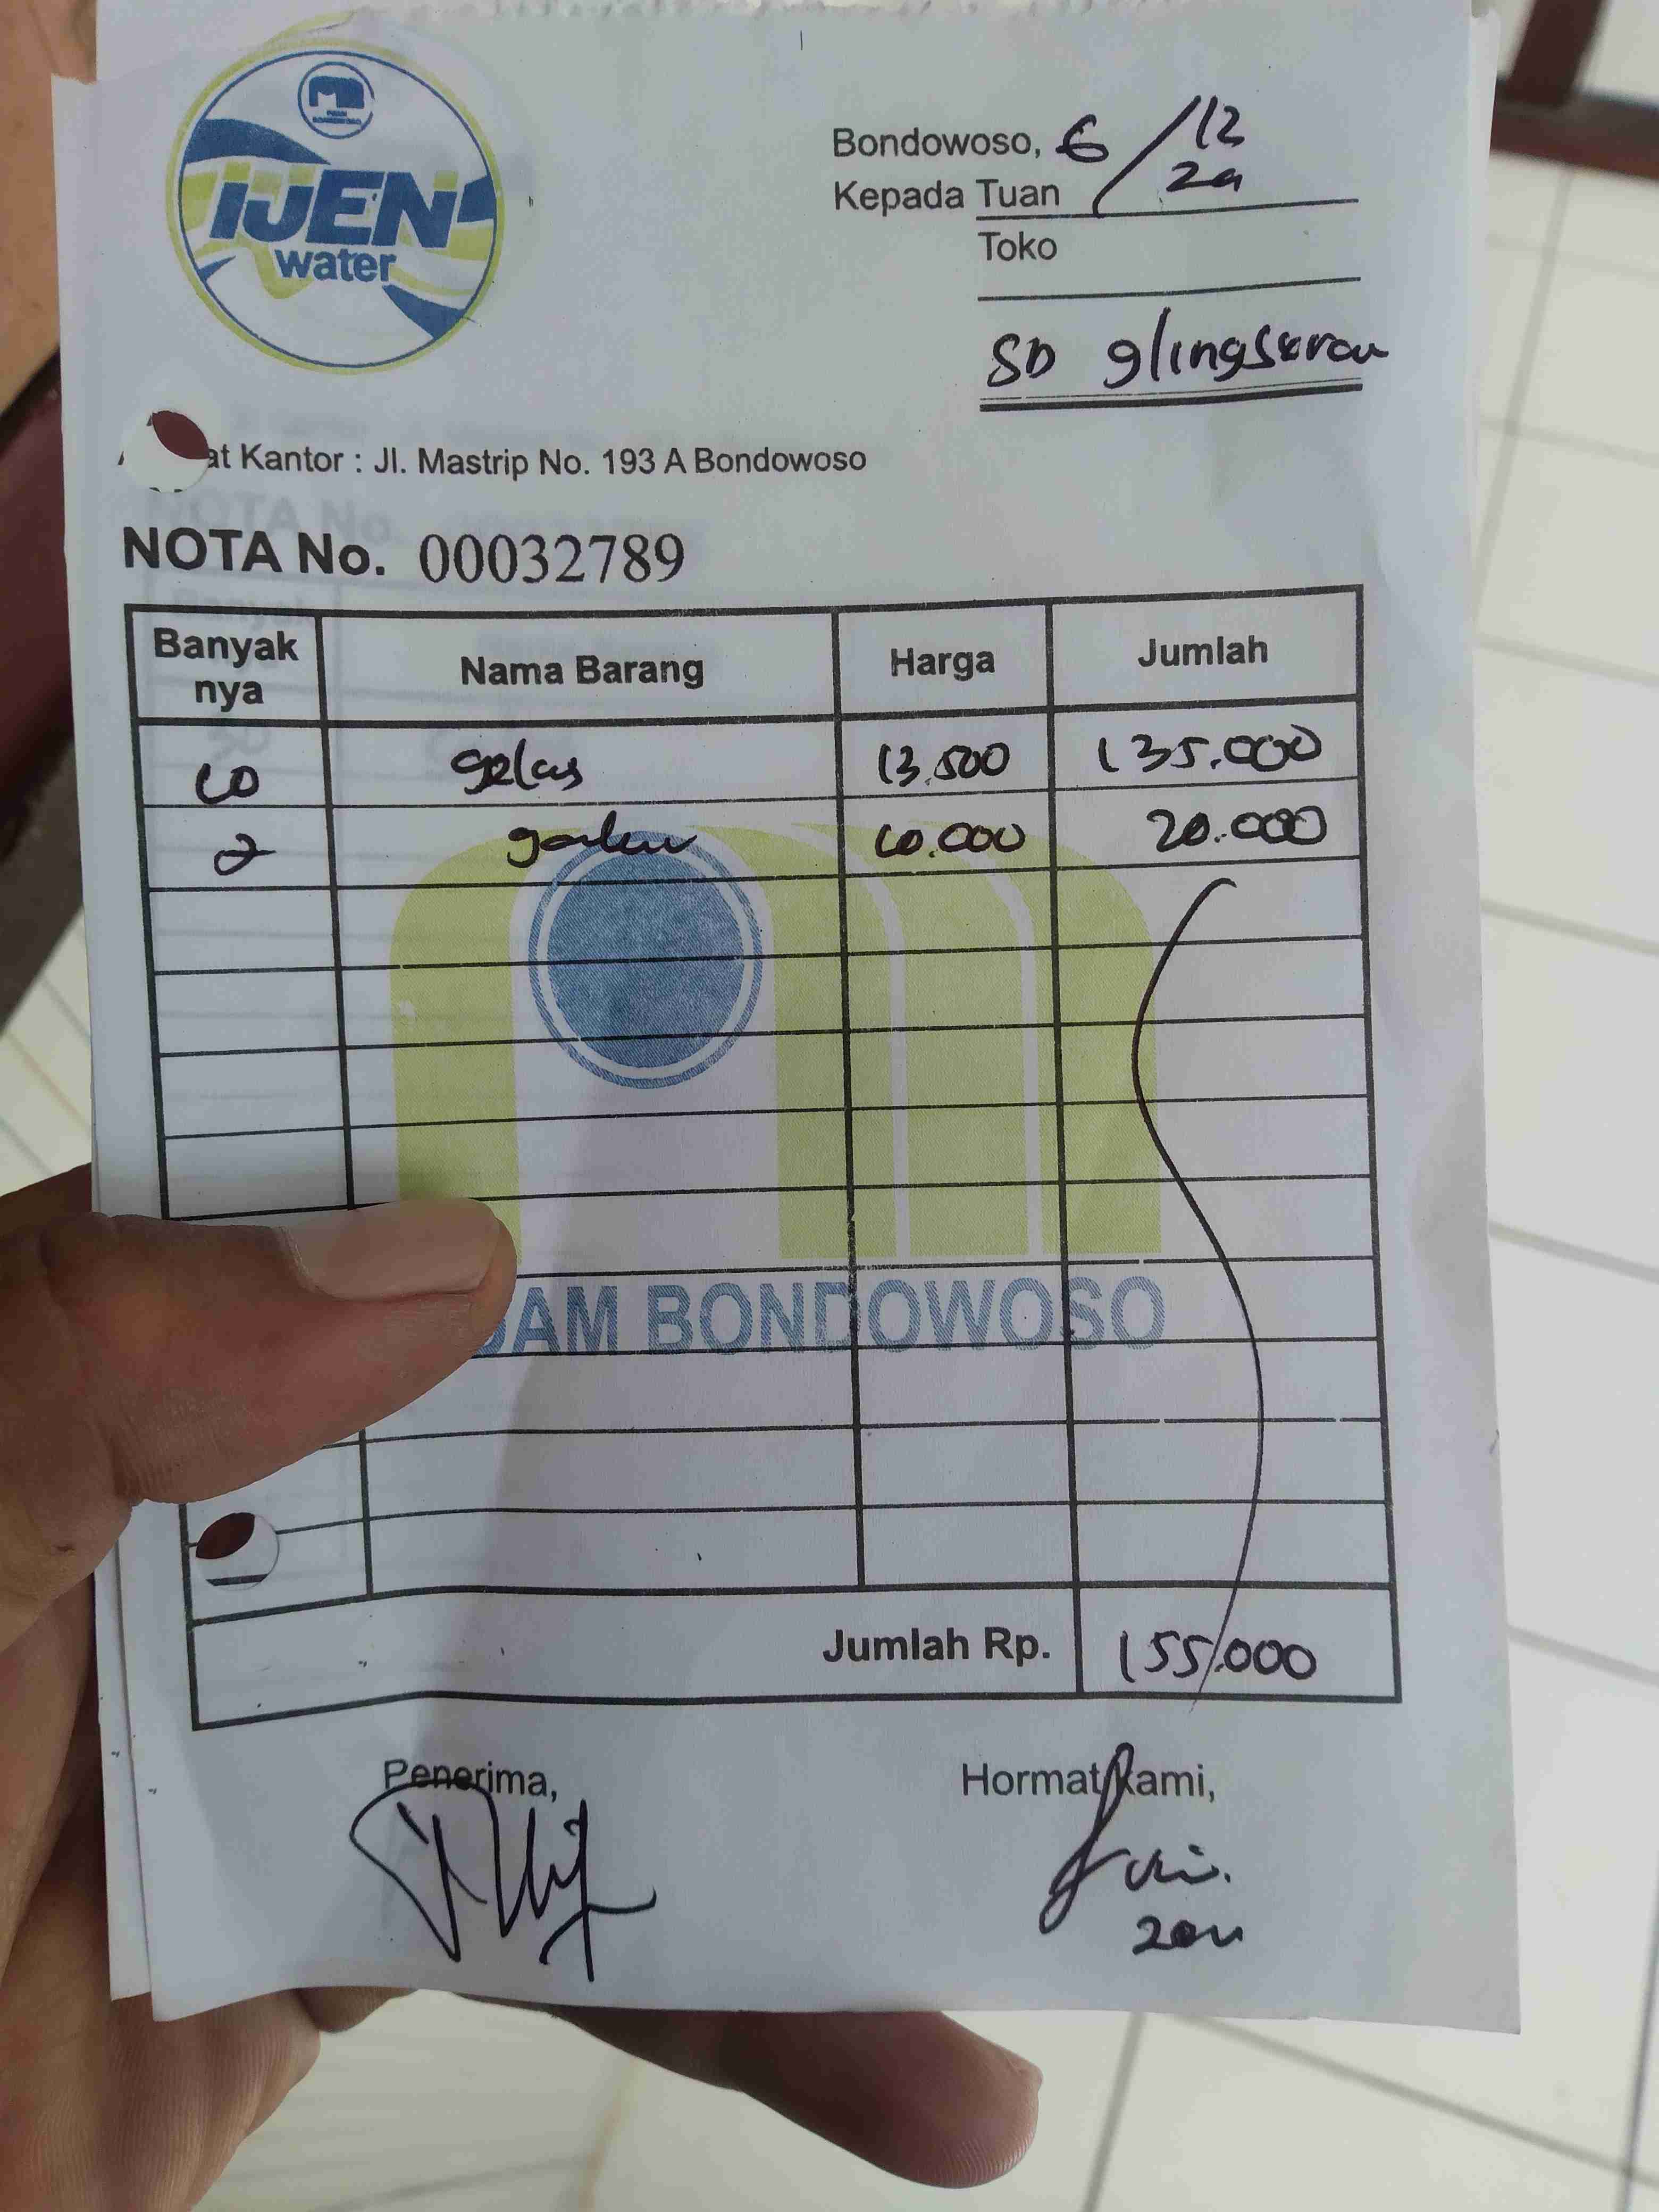 IJEN
water
Bondowoso, 6/12
24
Kepada Tuan
Toko
SD glingseran
at Kantor : Jl. Mastrip No. 193 A Bondowoso
NOTA No. 00032789
Banyak nya Nama Barang Harga Jumlah
10 gelas 13.500 135.000
2 galon 10.000 20.000
DAM BONDOWOSO
Jumlah Rp. 155.000
Penerima, Hormat Kami,